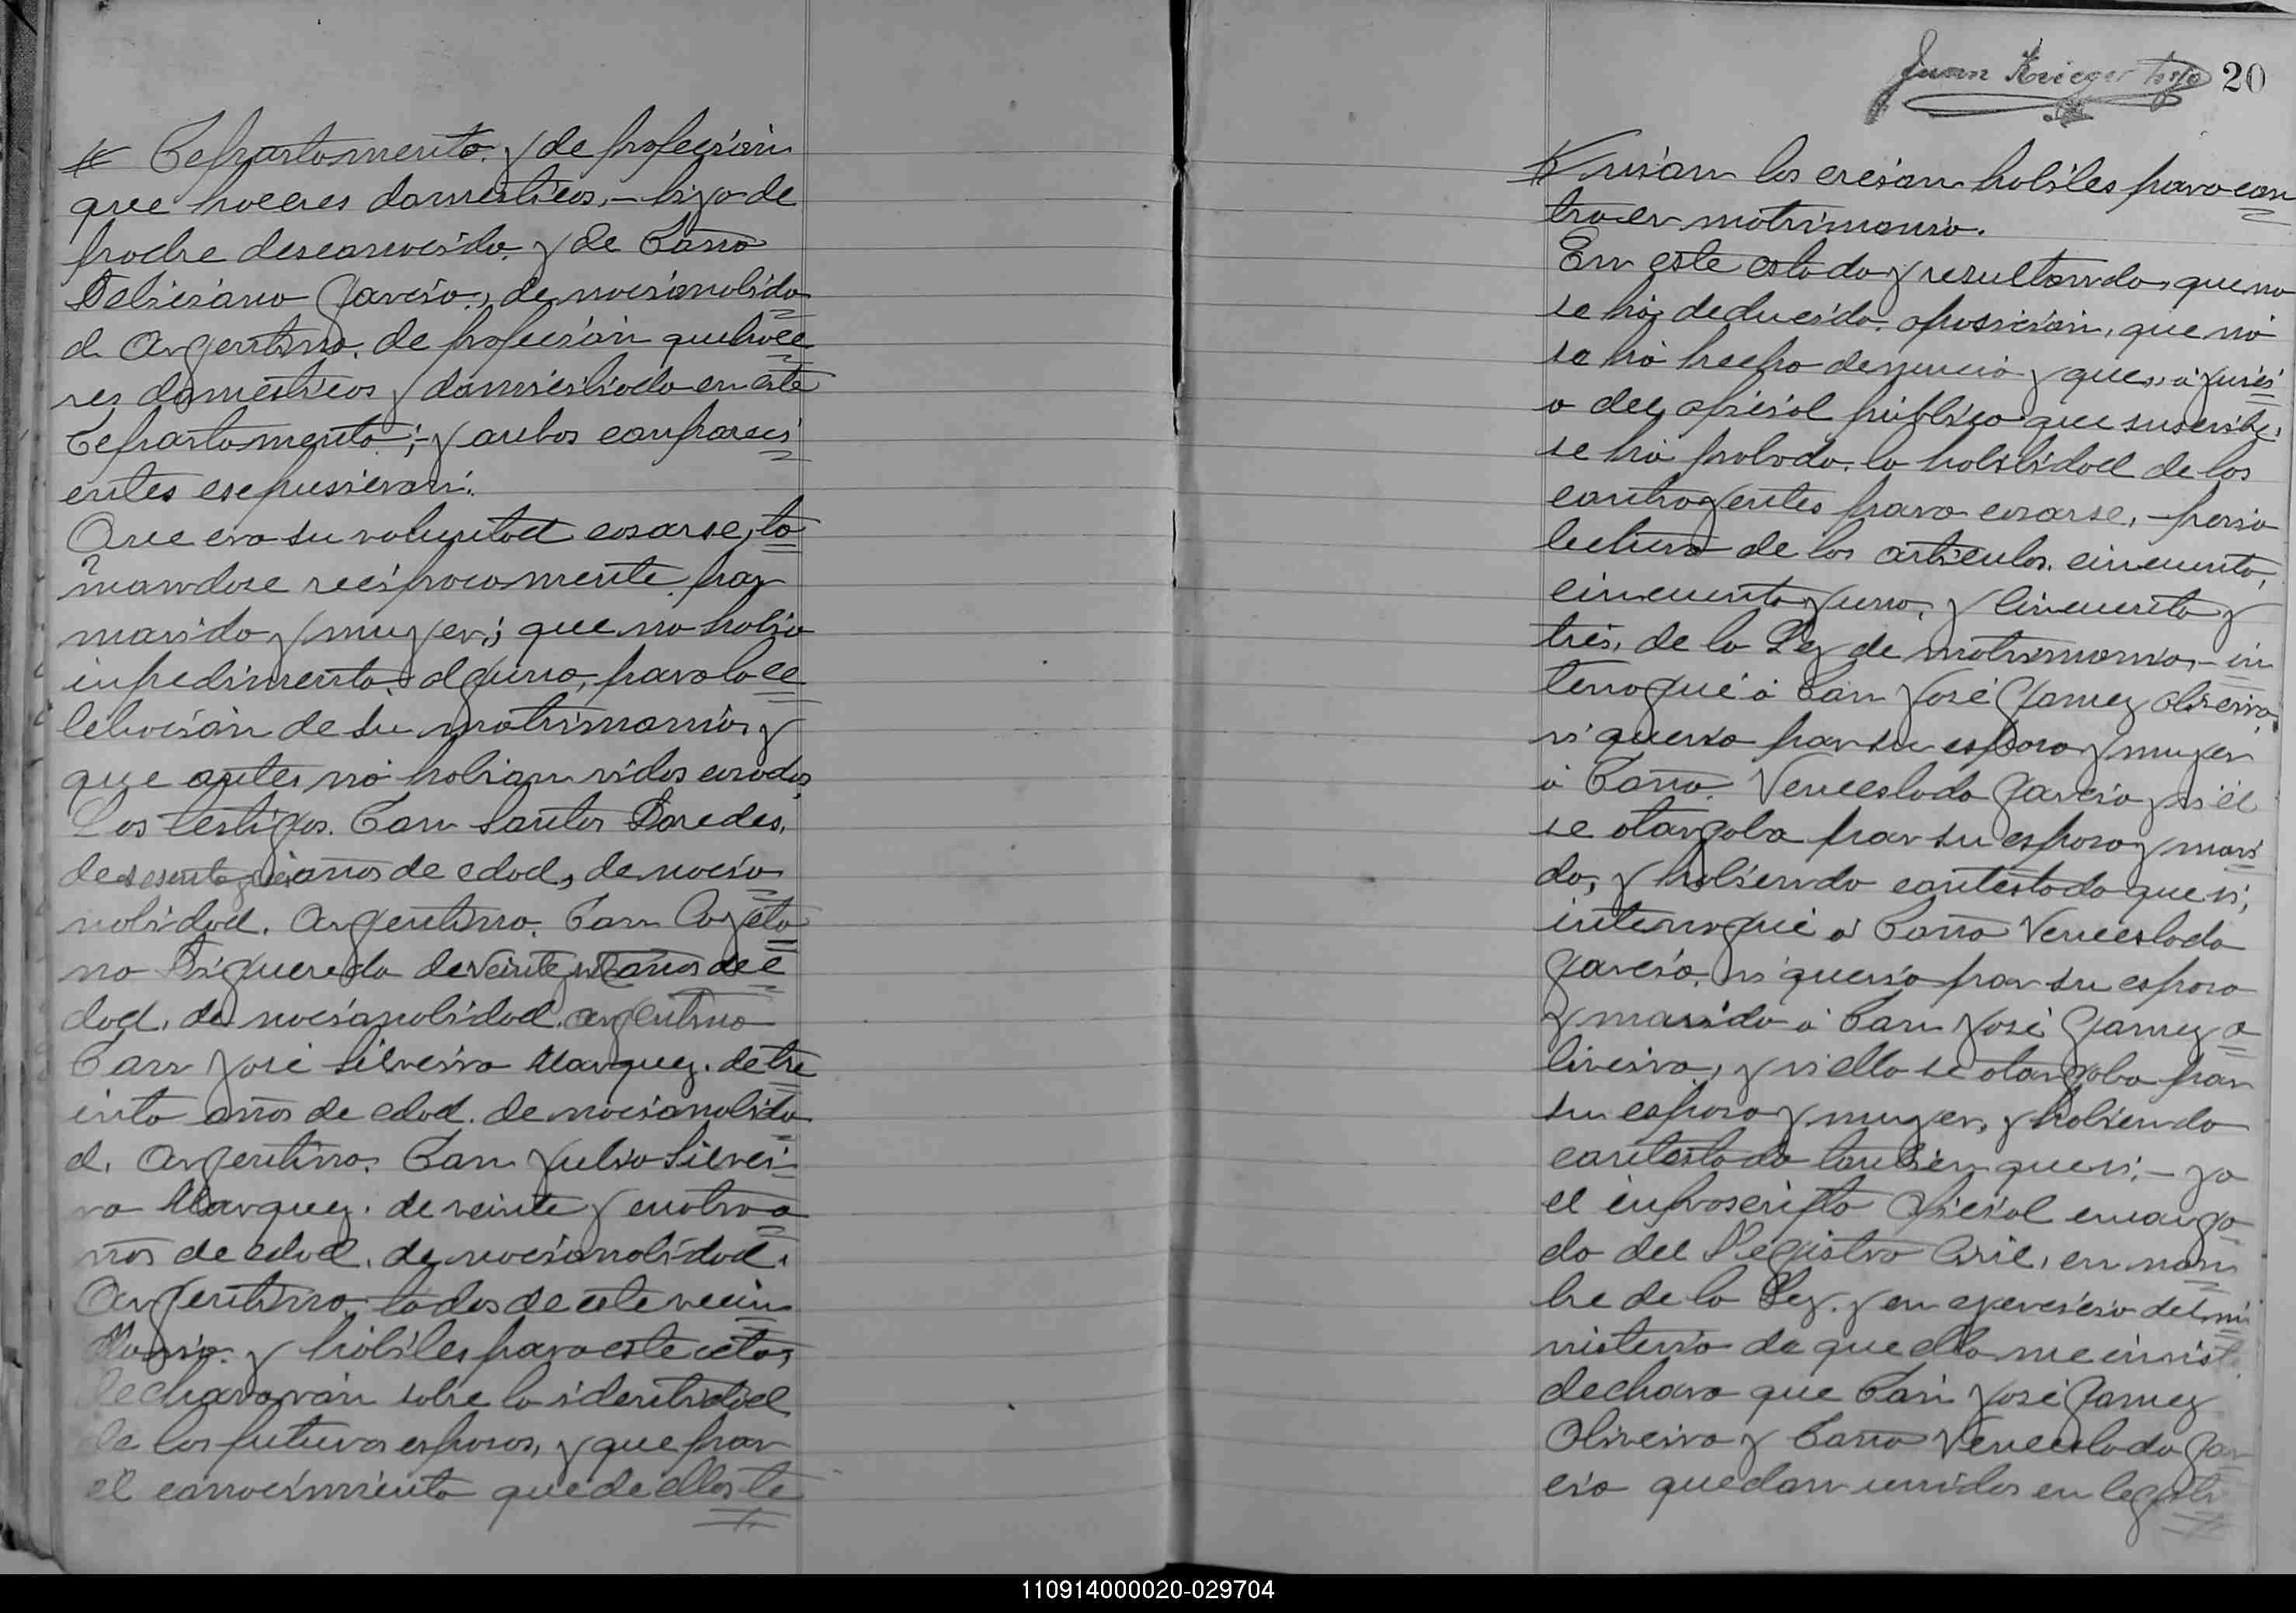 Departamento. y de profecion
que haceres domesticos, - hija de
padre desconocido. y de Doña
Feliciana Garcia, de nacionalida
d. Argentina. de profecion quehace
res domesticos y domiciliada en este
Departamento; - y ambos compareci
entes espusieron:
Que era su voluntad casarse, to
mandose reciprocamente. por
marido y muger; que no habia
inpedimento. alguno, para la ce
lebracion de su matrimonio y
que antes no habian sidos casados,
Los testigos. Don Santos Paredes.
de sesenta y años de edad, de nacio
nalidad. Argentino. Don Cayeta
no Figueredo de veinte y años de e
dad, de nacionalidad. argentino
Don José Silveira Marquez. de tre
inta años de edad. de nacionalida
d. Argentino. Don Julio Silvei
ra Marquez. de veinte y cuatro a
ños de edad. de nacionalidad.
Argentino. todos de este vecin
dario. y hábiles para este acto,
declararon sobre la identidad
de los futuros esposos, y que por
el conocimiento que de ellos te
Juan Krieger hijo 20
nian los creian habiles para con
traer matrimonio.
En este estado y resultando, que no
se há deducido. oposicion, que nó
se há hecho denuncia y que, á juici
o del oficial público que suscribe,
se há probado. la habilidad de los
contrayentes para casarse, - previa
lectura de los articulos. cincuenta,
cincuenta y uno, y cincuenta y
tres, de la Ley de matrimonio, - in
terrogué á Don José Gomez Oliveira
si queria por su esposa y muger
á Doña. Venceslada Garcia y si él
se otorgaba por su esposo y mari
do, y habiendo contestado que si,
interrogué á Doña Venceslada
Garcia, si queria por su esposo
y marido á Don José Gomez O
liveira, y si ella se otorgaba por
su esposa y muger, y habiendo
contestado tanbien que si, - yo
el infrascripto Oficial encarga
do del Registro Civil, en nom
bre de la Ley. y en egercicio del mi
nisterio de que ella me inviste
declaro que Don José Gomez
Oliveira y Doña Venceslada Gar
cia quedan unidos en legiti
110914000020-029704